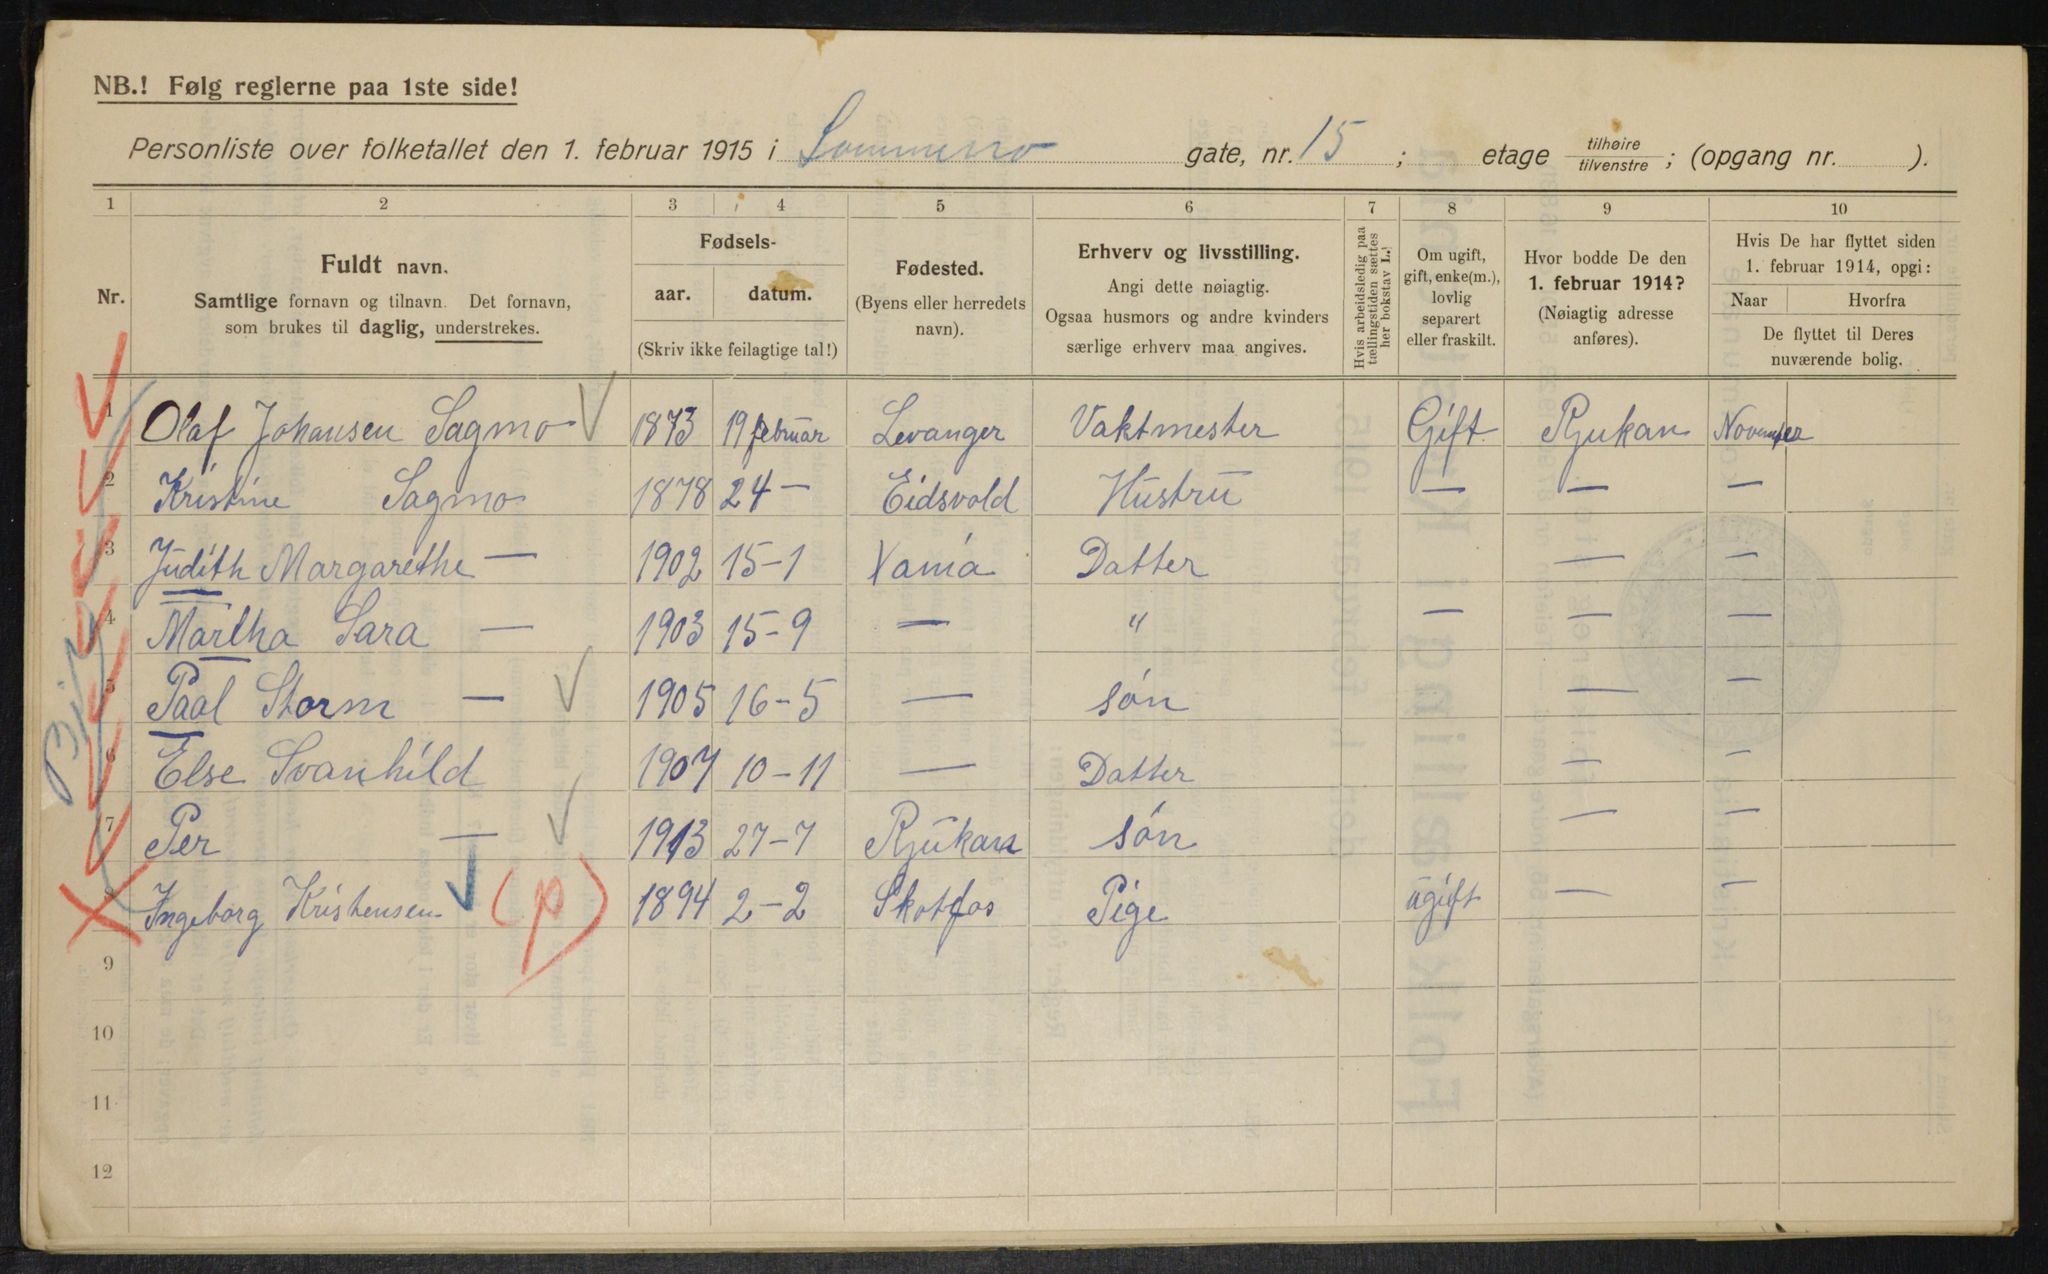 NB.! Følg reglerne paa 1ste side!
Personliste over folketallet den 1. februar 1915 i Sommerro gate, nr. 15 ; etage tilhøire/tilvenstre ; (opgang nr. ).
1 2 3 4 5 6 7 8 9 10
Nr.
Fuldt navn.
Samtlige fornavn og tilnavn. Det fornavn,
som brukes til daglig, understrekes.
Fødsels-
aar. datum.
(Skriv ikke feilagtige tal!)
Fødested.
(Byens eller herredets
navn).
Erhverv og livsstilling.
Angi dette nøiagtig.
Ogsaa husmors og andre kvinders
særlige erhverv maa angives.
Hvis arbeidsledig paa
tællingstiden sættes
her bokstav L.
Om ugift,
gift, enke(m.),
lovlig
separert
eller fraskilt.
Hvor bodde De den
1. februar 1914?
(Nøiagtig adresse
anføres).
Hvis De har flyttet siden
1. februar 1914, opgi:
Naar Hvorfra
De flyttet til Deres
nuværende bolig.
1 Olaf Johansen Sagmo 1873 19 februar Levanger Vaktmester Gift Rjukan November
2 Kristine Sagmo 1878 24 – Eidsvold Hustru — — —
3 Judith Margarethe — 1902 15–1 Datter — —
4 Martha Sara — 1903 15–9 — " — — —
5 Paal Storm — 1905 16–5 — søn — —
6 Else Svanhild 1907 10–11 — Datter — —
7 Per — 1913 27–7 Rjukan søn — —
8 Ingeborg Kristensen (p) 1894 2–2 Skotfos Pige ugift — —
9
10
11
12